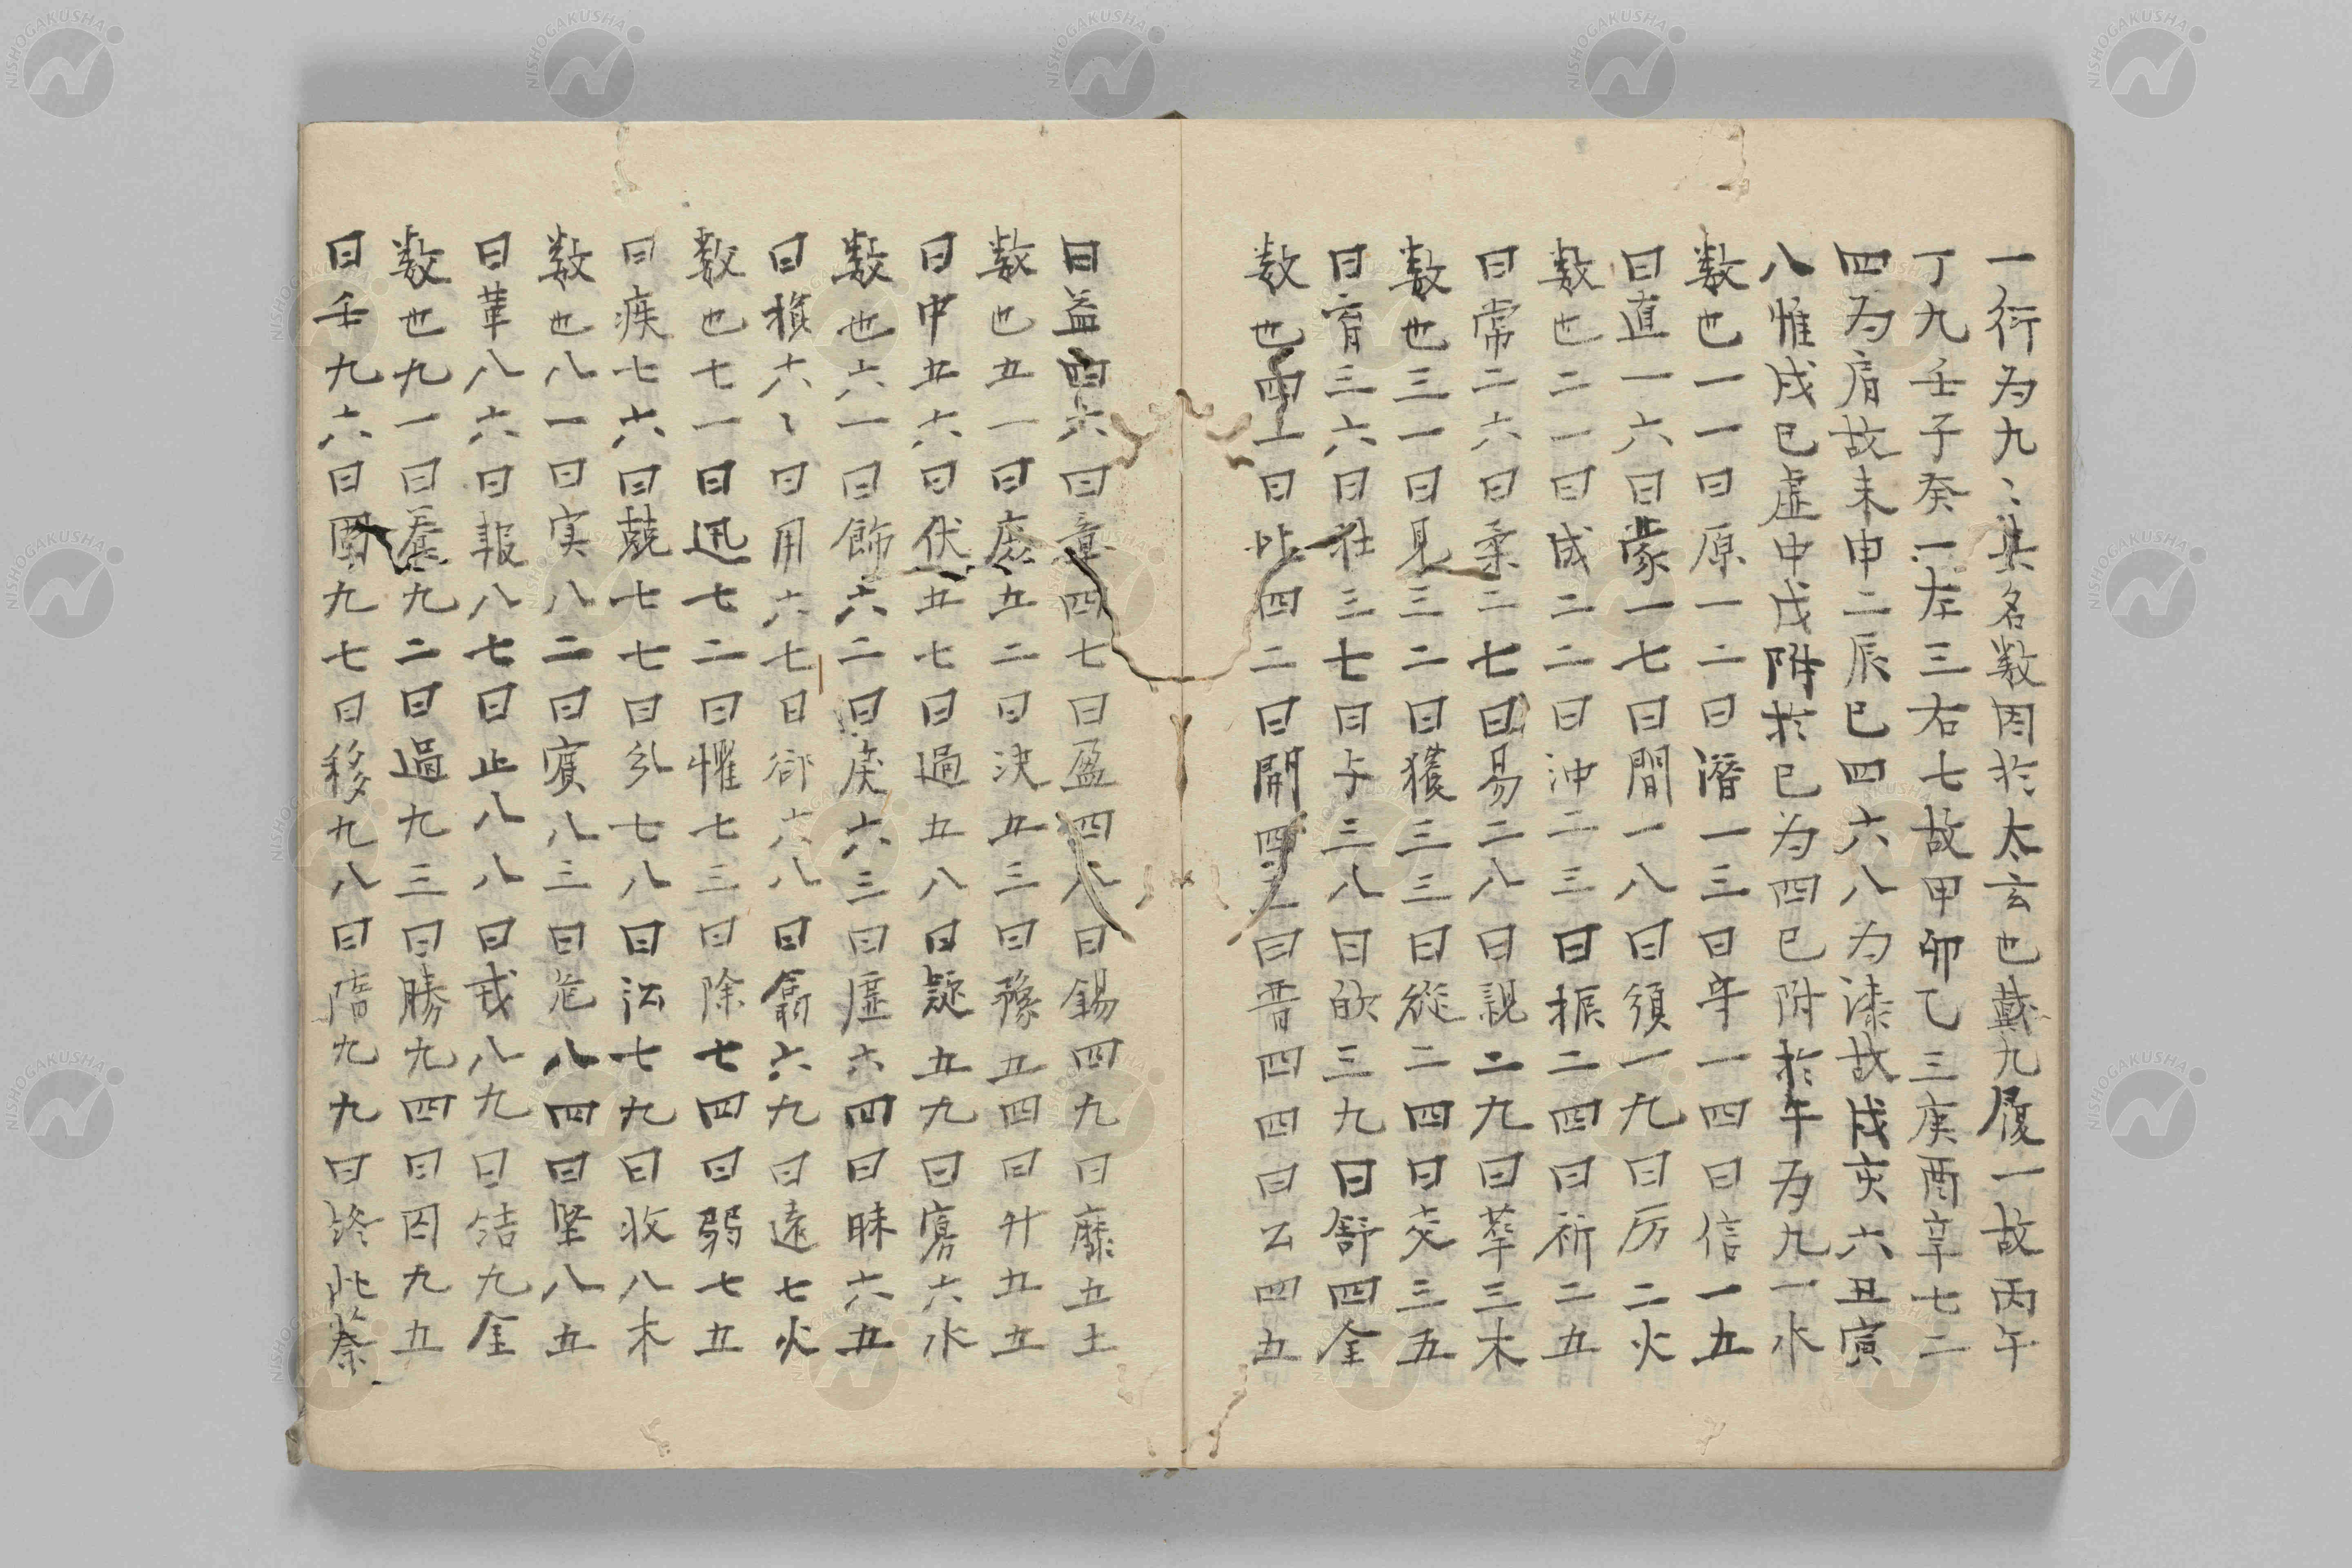 一衍为九〻其名数因於太玄也戴九履一故丙午
丁九壬子癸一左三右七故甲卯乙三庚酉辛七二
四为肩故未申二辰巳四六八为漆故戌亥六丑寅
八惟戊己虚中戊附於巳为四己附於午为九一水
数也一一曰原一二曰潜一三曰守一四曰信一五
曰直一六曰蒙一七曰間一八曰須一九曰厉二火
数也二一曰成二二曰沖二三曰振二四曰祈二五
曰常二六曰柔二七曰易二八曰親二九曰華三木
数也三一曰見三二曰獲三三曰従三四曰交三五
曰育三六曰壮三七曰与三八曰欣三九曰舒四金
数也四一曰比四二曰開四三曰晋四四曰公四五
曰益四六曰章四七曰盈四八曰錫四九曰靡五土
数也五一曰庶五二曰決五三曰豫五四曰升五五
曰中五六曰伏五七曰過五八曰疑五九曰寡六水
数也六一曰飾六二曰戾六三曰虚六四曰昧六五
曰損六〻曰用六七曰郤六八曰翕六九曰遠七火
数也七一曰迅七二曰懼七三曰除七四曰弱七五
曰疾七六曰競七七曰分七八曰訟七九曰收八木
数也八一曰実八二曰賓八三曰危八四曰坚八五
曰革八六曰報八七曰止八八曰戒八九曰結九金
数也九一曰養九二曰遇九三曰勝九四曰囚九五
曰壬九六曰固九七曰移九八曰隋九九曰終此蔡
NISHOGAKUSHA